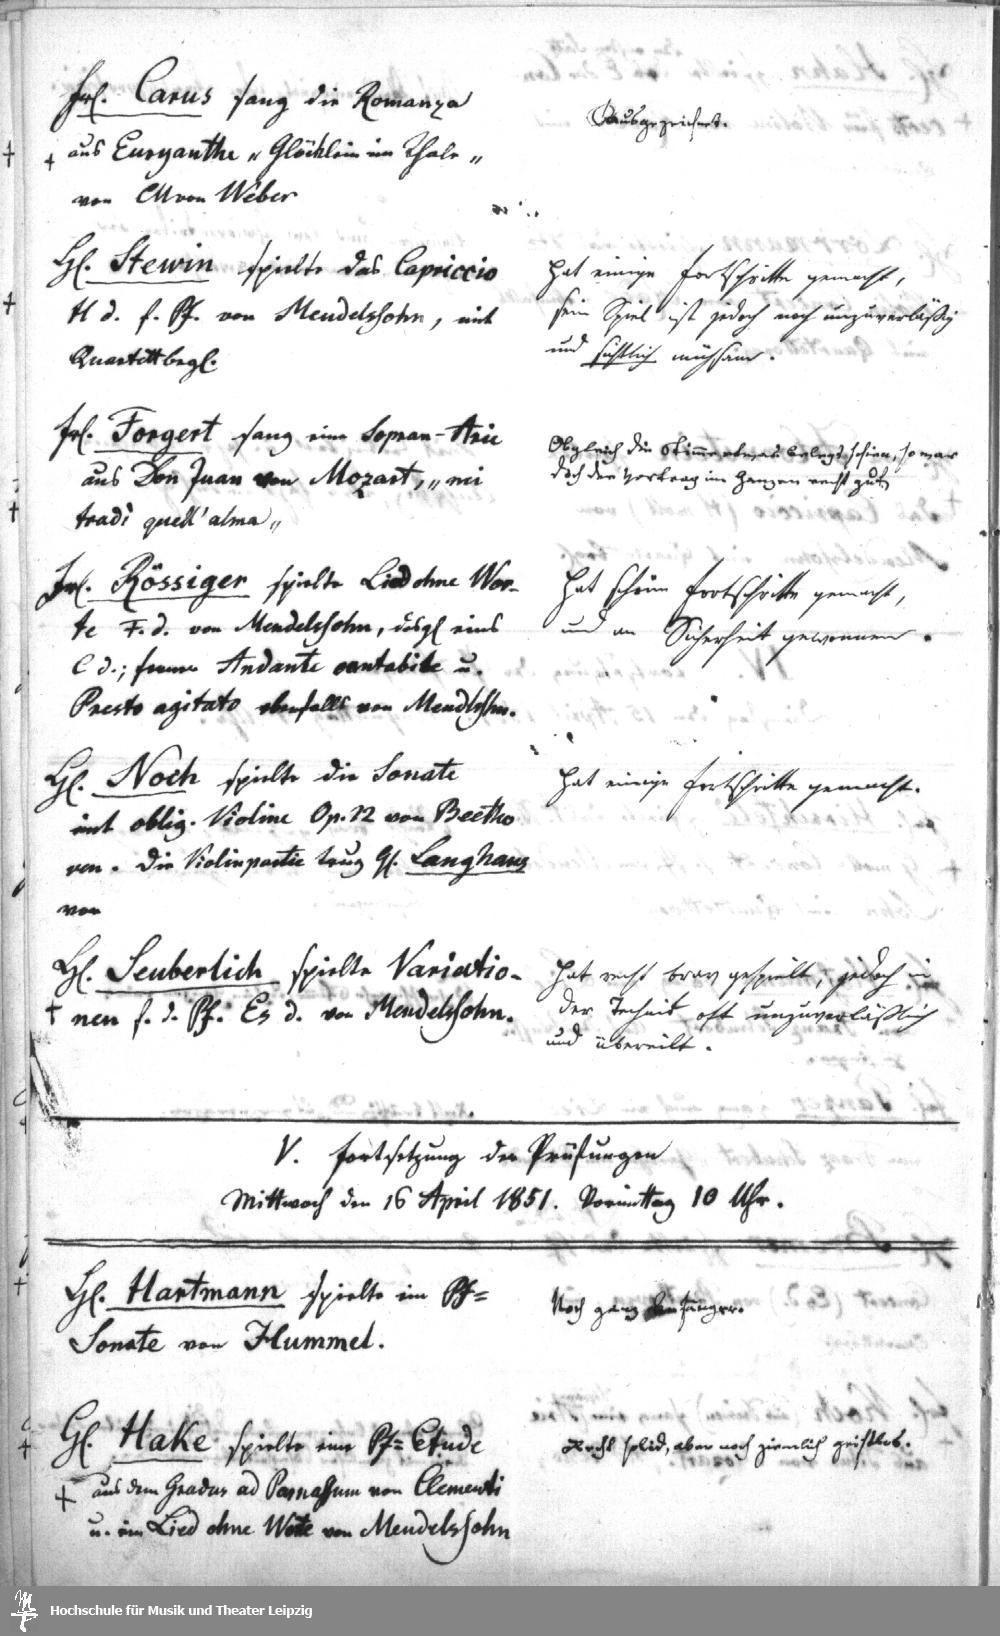 Frl. Carus sang die Romanza
aus Euryanthe „Glöcklein im Thale„
von CM von Weber
Ausgezeichnet.
H. Stewin spielte das Capriccio
H d. f. Pf. von Mendelssohn, mit
Quartettbegl.
Hat einige Fortschritte gemacht,
sein Spiel ist jedoch noch unzuverläßig
und sichtlich mühsam.
Frl. Forgert sang eine Sopran-Arie
aus Don Juan von Mozart, „mi
tradì quell' alma„
Obgleich die Stimme etwas belegt schien, so war
doch der Vortrag im Ganzen recht gut.
Frl. Rössiger spielte Lied ohne Wor-
te F. d. von Mendelssohn, dsgl eins
C d.; ferner Andante cantabile u.
Presto agitato ebenfalls von Mendelssohn.
Hat schöne Fortschritte gemacht,
und an Sicherheit gewonnen.
H. Noch spielte die Sonate
mit oblig. Violine Op. 12 von Beetho
ven. Die Violinpartie trug H. Langhans
vor
Hat einige Fortschritte gemacht.
H. Seuberlich spielte Variatio-
nen f. d. Pf. Es d. von Mendelssohn.
Hat recht brav gespielt, jedoch in
der Technik oft unzuverläßlich
und übereilt.
V. Fortsetzung der Prüfungen
Mittwoch den 16 April 1851. Vormittag 10 Uhr.
H. Hartmann spielte ein Pf=
Sonate von Hummel.
Noch ganz Anfänger.
H. Hake spielte eine Pf=Etude
aus dem Gradus ad Parnassum von Clementi
u. ein Lied ohne Worte von Mendelssohn
Recht solid, aber noch ziemlich geistlos.
Hochschule für Musik und Theater Leipzig